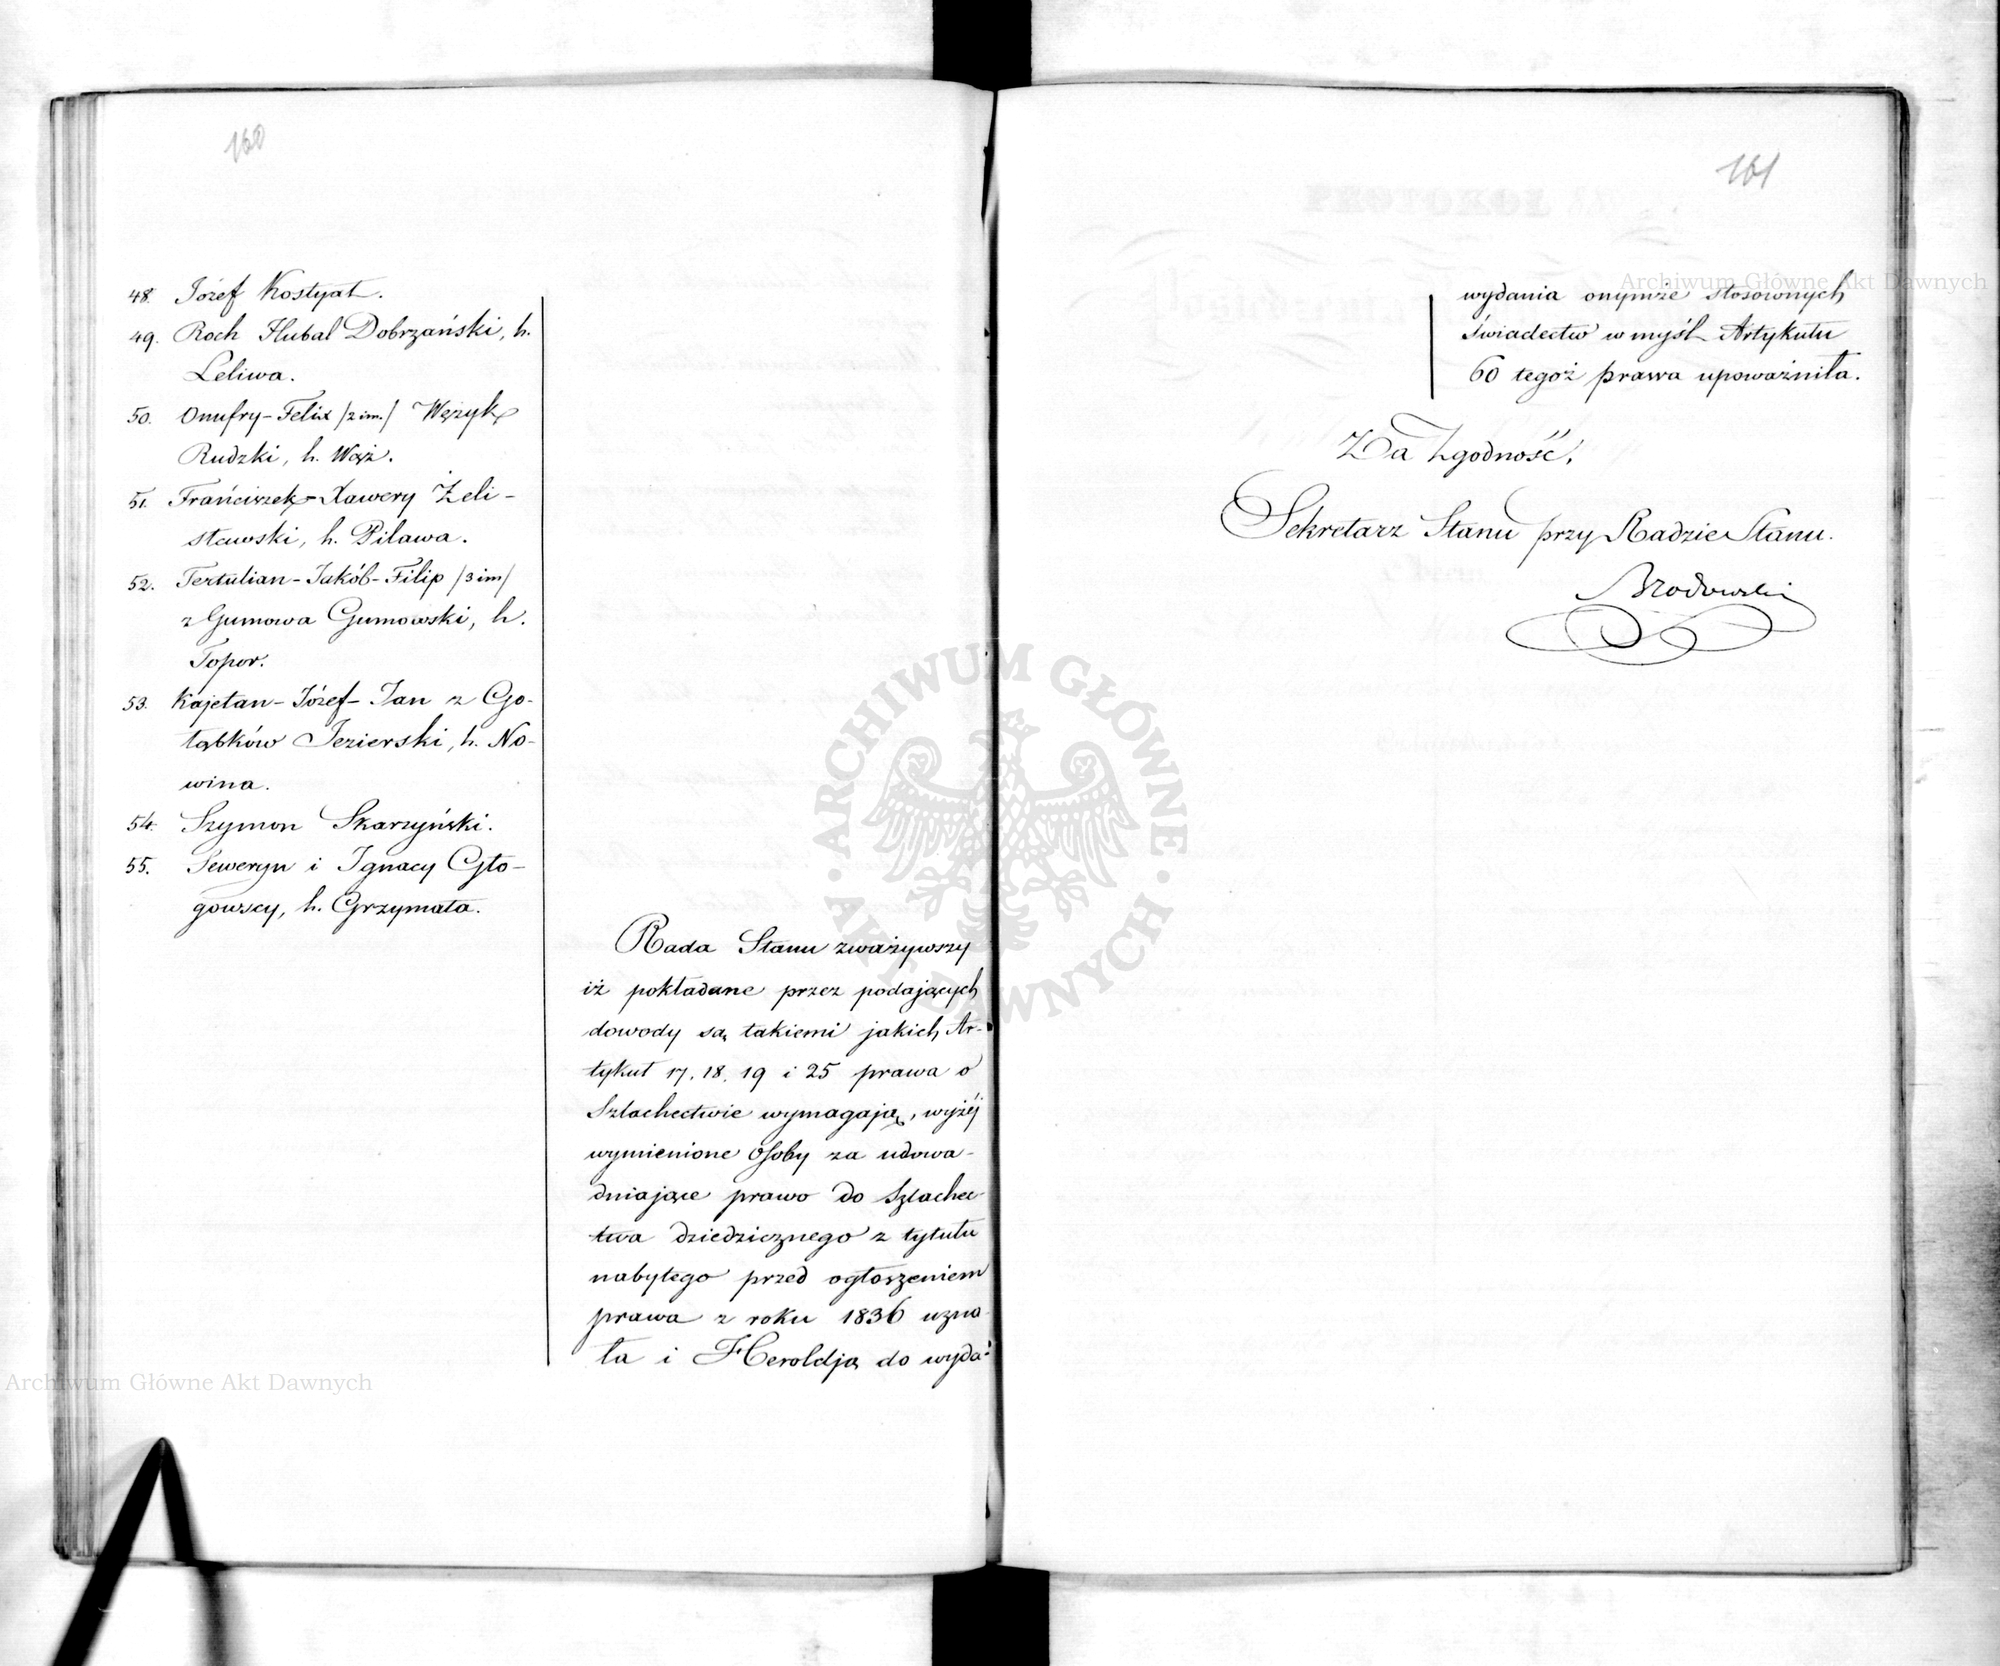 160
48. Józef Kostyał.
49. Roch Hubal Dobrzański, h.
Leliwa.
50. Onufry-Felix /2 im./ Wężyk
Rudzki, h. Wąż.
51. Franciszek-Xawery Żeli-
sławski, h. Pilawa.
52. Tertulian-Jakób-Filip /3 im/
z Gumowa Gumowski, h.
Topor.
53. Kajetan-Józef-Jan z Go-
łąbków Jezierski, h. No-
wina.
54. Szymon Skarzyński.
55. Seweryn i Ignacy Gło-
gowscy, h. Grzymała.
Rada Stanu zważywszy
iż pokładane przez podających
dowody są takiemi jakich Ar-
tykuł 17, 18, 19 i 25 prawa o
Szlachectwie wymagają, wyżej
wymienione Osoby za udowa-
dniające prawo do Szlachec-
twa dziedzicznego z tytułu
nabytego przed ogłoszeniem
prawa z roku 1836 uzna-
ła i Heroldją do wyda-
161
wydania onymże stosownych
świadectw w myśl Artykułu
60 tegoż prawa upoważniła.
Za Zgodność,
Sekretarz Stanu przy Radzie Stanu.
Brodowski
Archiwum Główne Akt Dawnych
ARCHIWUM GŁÓWNE · AKT DAWNYCH ·
Archiwum Główne Akt Dawnych